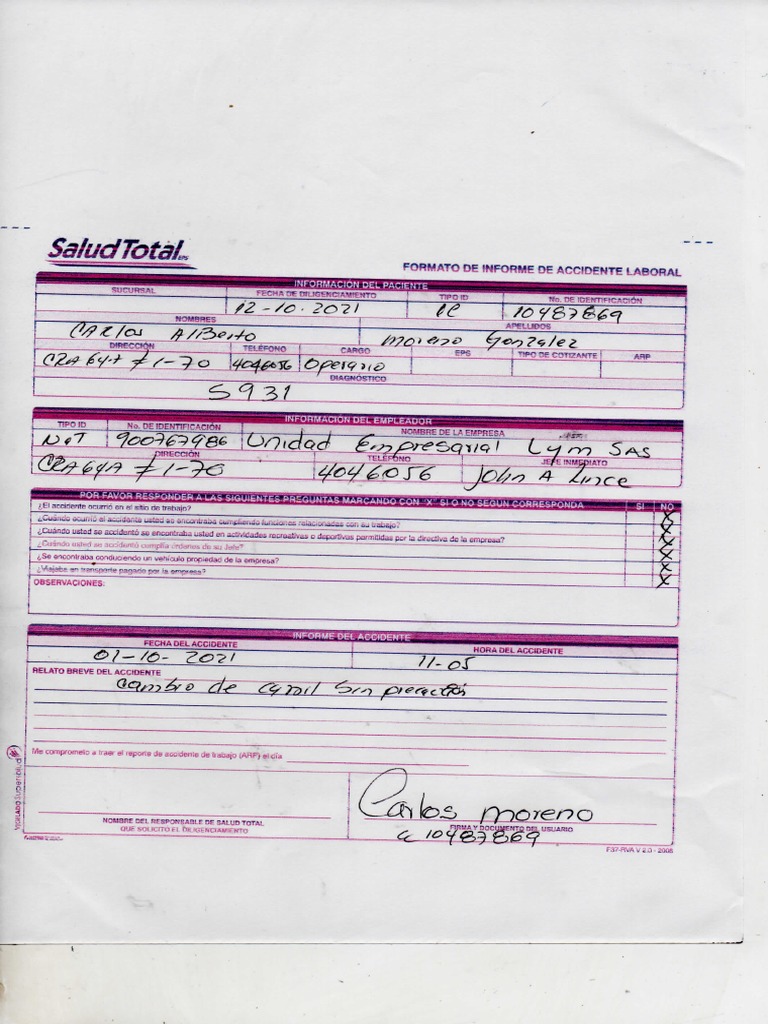 SaludTotal EPS
FORMATO DE INFORME DE ACCIDENTE LABORAL
INFORMACIÓN DEL PACIENTE
SUCURSAL FECHA DE DILIGENCIAMIENTO TIPO ID No. DE IDENTIFICACIÓN
12-10-2021 CC 10487869
NOMBRES APELLIDOS
CARlos AlBerto Moreno Gonzalez
DIRECCIÓN TELÉFONO CARGO EPS TIPO DE COTIZANTE ARP
CRA 64A # 1-70 4046056 Operario
DIAGNÓSTICO
S931
INFORMACIÓN DEL EMPLEADOR
TIPO ID No. DE IDENTIFICACIÓN NOMBRE DE LA EMPRESA
NIT 900767986 Unidad Empresarial Lym SAS
DIRECCIÓN TELÉFONO JEFE INMEDIATO
CRA 64A # 1-70 4046056 John A Lince
POR FAVOR RESPONDER A LAS SIGUIENTES PREGUNTAS MARCANDO CON "X" SI O NO SEGUN CORRESPONDA SI NO
¿El accidente ocurrió en el sitio de trabajo? X
¿Cuándo ocurrió el accidente usted se encontraba cumpliendo funciones relacionadas con su trabajo? X
¿Cuándo usted se accidentó se encontraba usted en actividades recreativas o deportivos permitidas por la directiva de la empresa? X
¿Cuándo usted se accidentó cumplía órdenes de su Jefe? X
¿Se encontraba conduciendo un vehículo propiedad de la empresa? X
¿Viajaba en transporte pagado por la empresa? X
OBSERVACIONES:
INFORME DEL ACCIDENTE
FECHA DEL ACCIDENTE HORA DEL ACCIDENTE
01-10-2021 11-05
RELATO BREVE DEL ACCIDENTE
Cambio de carril Sin
Me comprometo a traer el reporte de accidente de trabajo (ARP) el día
VIGILADO Supersalud
Carlos Moreno
NOMBRE DEL RESPONSABLE DE SALUD TOTAL FIRMA Y DOCUMENTO DEL USUARIO
QUE SOLICITÓ EL DILIGENCIAMIENTO cc 10487869
F37-RIVA V 2.0 - 2008